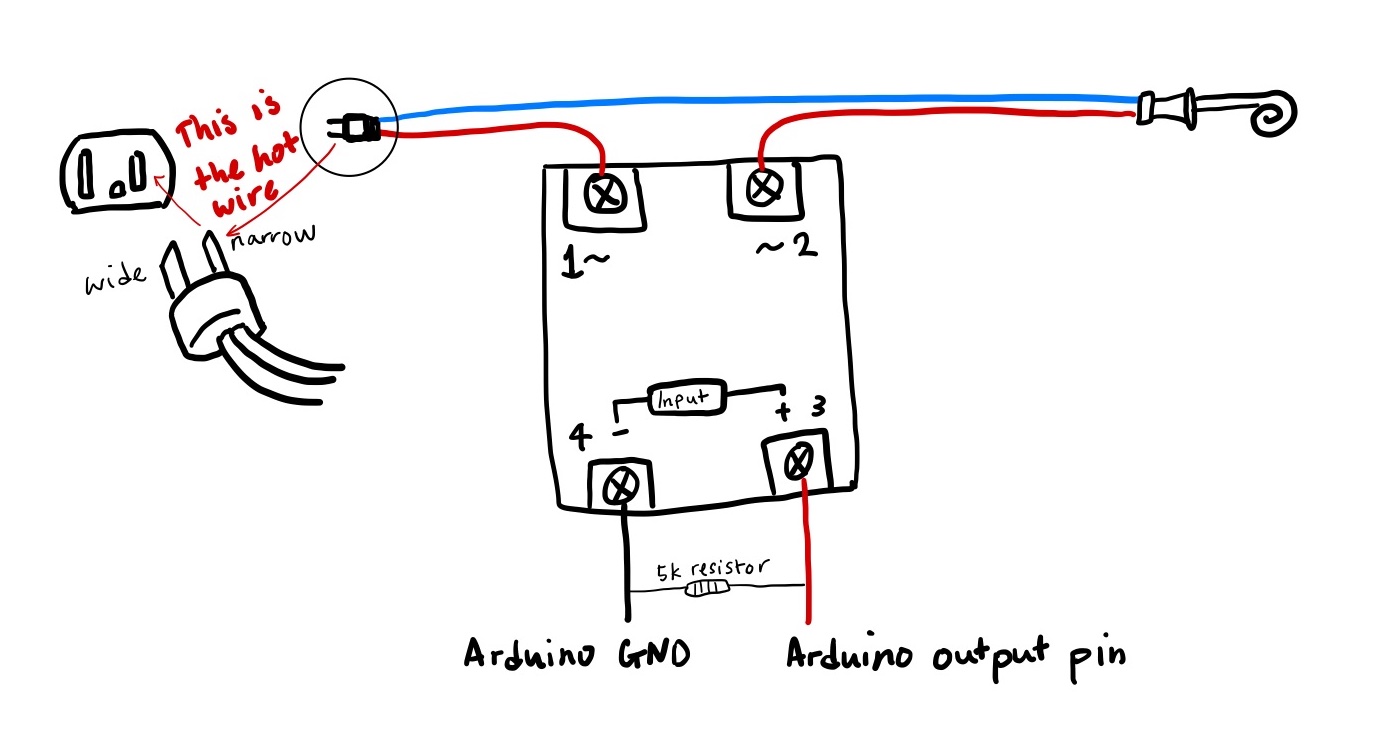 This is
the hot
wire
narrow
wide
1~
~2
Input
4 -
+ 3
5k resistor
Arduino GND
Arduino output pin